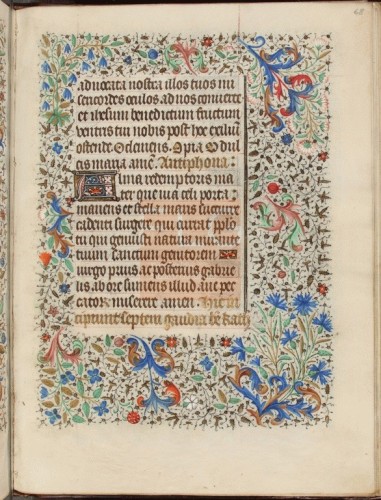 68
aduocata nostra illos tuos mi
sericordes oculos ad nos conuerte
et ihesum benedictum fructum
ventris tui nobis post hoc exiliu
ostende O clemens O pia O dul
cis maria ame Antiphona
Alma redemptoris ma
ter que puia celi porta
manens et stella maris succurre
cadenti surgere qui curat pplo
tu qui genuisti natura mirante
tuum sanctum genitorem
uirgo prius ac posterius gabrie
lis ab ore sumens illud aue pec
cator miserere amen Hic in
cipiunt septem gaudia be